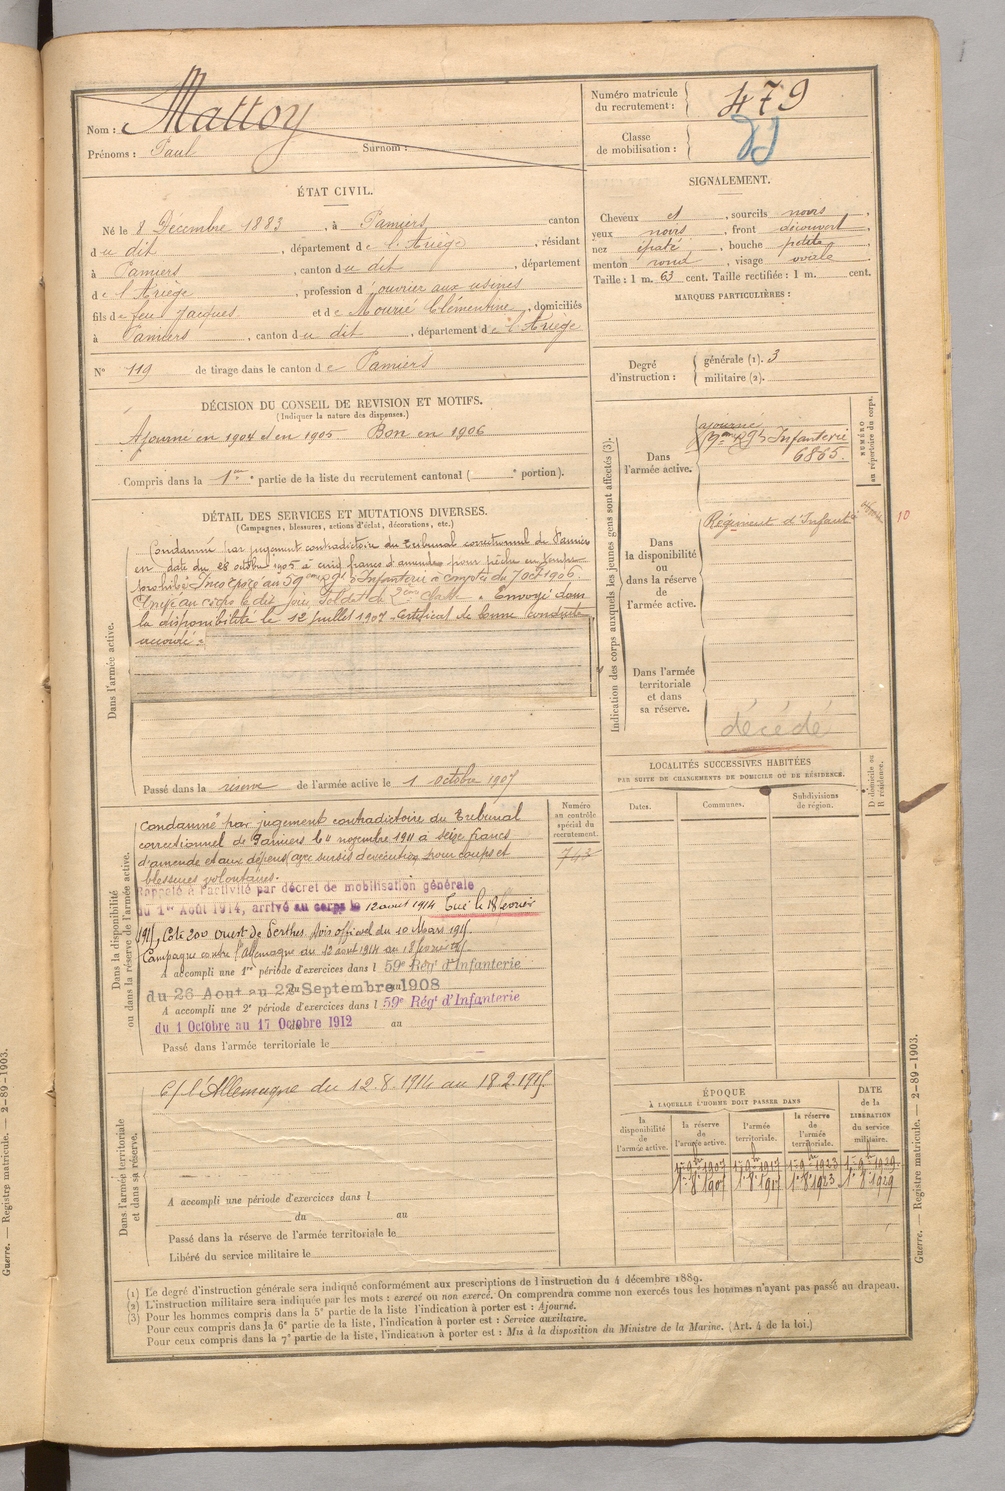 Nom : Mattoy
Prénoms : Paul Surnom :
Numéro matricule du recrutement : 479
Classe de mobilisation :
ÉTAT CIVIL.
Né le 8 Décembre 1883, à Pamiers canton
du dit, département de l'Ariège, résidant
à Pamiers, canton du dit, département
de l'Ariège, profession d'ouvrier aux usines
fils de feu Jacques et de Mourié Clémentine, domiciliés
à Pamiers, canton du dit, département de l'Ariège
N° 119 de tirage dans le canton de Pamiers
SIGNALEMENT.
Cheveux et, sourcils noirs,
yeux noirs, front découvert,
nez épaté, bouche petite,
menton rond, visage ovale.
Taille : 1 m. 63 cent. Taille rectifiée : 1 m. cent.
MARQUES PARTICULIÈRES :
Degré d'instruction : générale (1). 3
militaire (2).
DÉCISION DU CONSEIL DE REVISION ET MOTIFS.
(Indiquer la nature des dispenses.)
Ajourné en 1904 et en 1905 Bon en 1906
Compris dans la 1re partie de la liste du recrutement cantonal ( e portion).
DÉTAIL DES SERVICES ET MUTATIONS DIVERSES.
(Campagnes, blessures, actions d'éclat, décorations, etc.)
Dans l'armée active.
Condamné par jugement contradictoire du Tribunal correctionnel de Pamiers
en date du 28 octobre 1905 à cinq francs d'amende pour pêche en temps
prohibé. Incorporé au 59eme Rgt d'Infanterie à compter du 7 oct 1906.
Arrivé au corps le dit jour, Soldat de 2eme Classe. Envoyé dans
la disponibilité le 12 juillet 1907. Certificat de bonne conduite
accordé.
Passé dans la réserve de l'armée active le 1 octobre 1907
Indication des corps auxquels les jeunes gens sont affectés (3).
NUMÉRO au répertoire du corps.
Dans l'armée active.
ajourné
Infanterie
6865.
Dans la disponibilité ou dans la réserve de l'armée active.
Régiment d'Infant
10
Dans l'armée territoriale et dans sa réserve.
décédé
LOCALITÉS SUCCESSIVES HABITÉES
PAR SUITE DE CHANGEMENTS DE DOMICILE OU DE RÉSIDENCE.
Dates. Communes. Subdivisions de région. D domicile ou R résidence.
Dans la disponibilité ou dans la réserve de l'armée active.
Numéro au contrôle spécial du recrutement.
743
Condamné par jugement contradictoire du Tribunal
correctionnel de Pamiers le 11 novembre 1911 à seize francs
d'amende et aux dépens (avec sursis d'exécution) pour coups et
blessures volontaires.
Rappelé à l'activité par décret de mobilisation générale
du 1er Août 1914, arrivé au corps le 12 aout 1914 Tué le 18 février
1915, Côte 200 Ouest de Perthes. Avis officiel du 10 Mars 1915.
Campagne contre l'Allemagne du 12 aout 1914 au 18 février 1915.
A accompli une 1re période d'exercices dans l 59e Régt d'Infanterie
du 26 Aout au 22 Septembre 1908
A accompli une 2e période d'exercices dans l 59e Régt d'Infanterie
du 1 Octobre au 17 Octobre 1912 au
Passé dans l'armée territoriale le
Dans l'armée territoriale et dans sa réserve.
C/ l'Allemagne du 12.8.1914 au 18.2.1915
A accompli une période d'exercices dans l
du au
Passé dans la réserve de l'armée territoriale le
Libéré du service militaire le
ÉPOQUE
À LAQUELLE L'HOMME DOIT PASSER DANS
la disponibilité de l'armée active.
la réserve de l'armée active.
l'armée territoriale.
la réserve de l'armée territoriale.
DATE de la LIBÉRATION du service militaire.
1er 8 1907 1er 8 1917 1er 8 1923 1er 8 1929
(1) Le degré d'instruction générale sera indiqué conformément aux prescriptions de l'instruction du 4 décembre 1889.
(2) L'instruction militaire sera indiquée par les mots : exercé ou non exercé. On comprendra comme non exercés tous les hommes n'ayant pas passé au drapeau.
(3) Pour les hommes compris dans la 5e partie de la liste l'indication à porter est : Ajourné.
Pour ceux compris dans la 6e partie de la liste, l'indication à porter est : Service auxiliaire.
Pour ceux compris dans la 7e partie de la liste, l'indication à porter est : Mis à la disposition du Ministre de la Marine. (Art. 4 de la loi.)
Guerre. — Registre matricule. — 2-89-1903.
Guerre. — Registre matricule. — 2-89-1903.